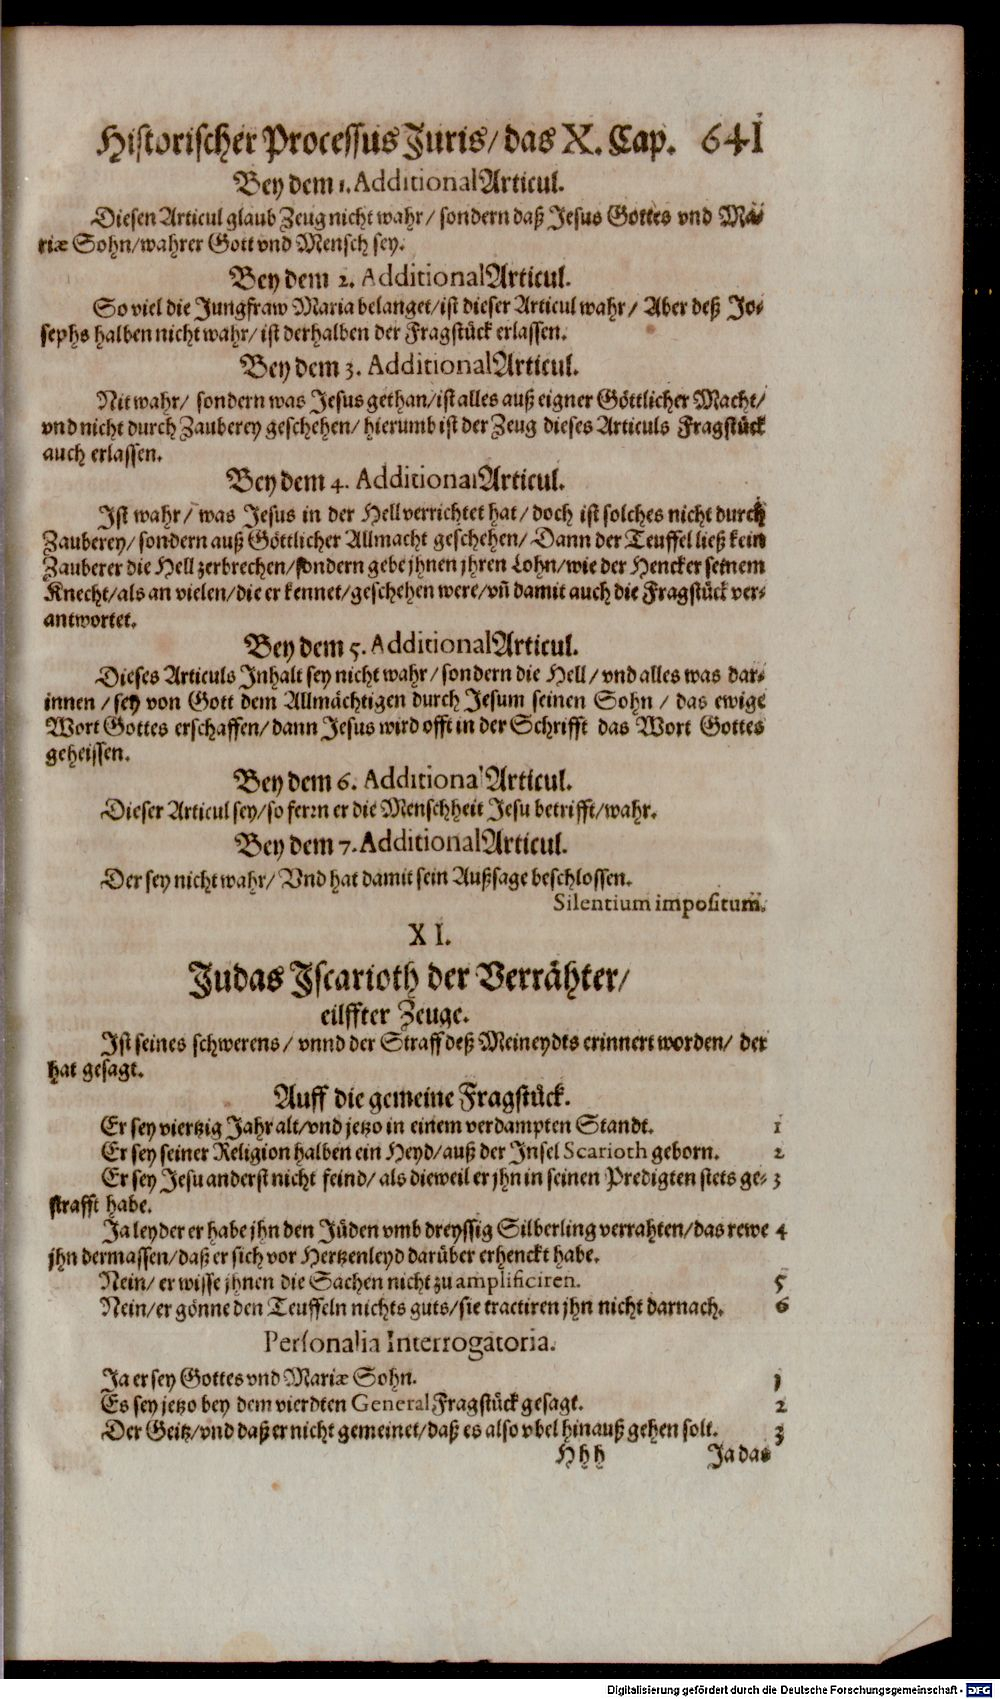 Historischer Processus Juris/ das X. Cap. 641
Bey dem 1. Additional Articul.
Diesen Articul glaub Zeug nicht wahr/ sondern daß Jesus Gottes vnd Ma-
riæ Sohn/ wahrer Gott vnd Mensch sey.
Bey dem 2. Additional Articul.
So viel die Jungfraw Maria belanget/ ist dieser Articul wahr/ Aber deß Jo-
sephs halben nicht wahr/ ist derhalben der Fragstück erlassen.
Bey dem 3. Additional Articul.
Nit wahr/ sondern was Jesus gethan/ ist alles auß eigner Göttlicher Macht/
vnd nicht durch Zauberey geschehen/ hierumb ist der Zeug dieses Articuls Fragstück
auch erlassen.
Bey dem 4. Additional Articul.
Ist wahr/ was Jesus in der Hell verrichtet hat/ doch ist solches nicht durch
Zauberey/ sondern auß Göttlicher Allmacht geschehen/ Dann der Teuffel ließ kein
Zauberer die Hell zerbrechen/ sondern gebe jhnen jhren Lohn/ wie der Hencker seinem
Knecht/ als an vielen/ die er kennet/ geschehen were/ vñ damit auch die Fragstück ver-
antwortet.
Bey dem 5. Additional Articul.
Dieses Articuls Inhalt sey nicht wahr/ sondern die Hell/ vnd alles was dar-
innen/ sey von Gott dem Allmächtigen durch Jesum seinen Sohn/ das ewige
Wort Gottes erschaffen/ dann Jesus wird offt in der Schrifft das Wort Gottes
geheissen.
Bey dem 6. Additional Articul.
Dieser Articul sey/ so ferrn er die Menschheit Jesu betrifft/ wahr.
Bey dem 7. Additional Articul.
Der sey nicht wahr/ Vnd hat damit sein Außsage beschlossen.
Silentium impositum.
XI.
Judas Iscarioth der Verrähter/
eilffter Zeuge.
Ist seines schwerens/ vnnd der Straff deß Meineydts erinnert worden/ der
hat gesagt.
Auff die gemeine Fragstück.
Er sey viertzig Jahr alt/ vnd jetzo in einem verdampten Standt. 1
Er sey seiner Religion halben ein Heyd/ auß der Insel Scarioth geborn. 2
Er sey Jesu anderst nicht feind/ als dieweil er jhn in seinen Predigten stets ge- 3
strafft habe.
Ja leyder er habe jhn den Jüden vmb dreyssig Silberling verrahten/ das rewe 4
jhn dermassen/ daß er sich vor Hertzenleyd darüber erhenckt habe.
Nein/ er wisse jhnen die Sachen nicht zu amplificiren. 5
Nein/ er gönne den Teuffeln nichts guts/ sie tractiren jhn nicht darnach. 6
Personalia Interrogatoria.
Ja er sey Gottes vnd Mariæ Sohn. 1
Es sey jetzo bey dem vierdten General Fragstück gesagt. 2
Der Geitz/ vnd daß er nicht gemeinet/ daß es also vbel hinauß gehen solt. 3
Hhh Ja das
Digitalisierung gefördert durch die Deutsche Forschungsgemeinschaft - DFG